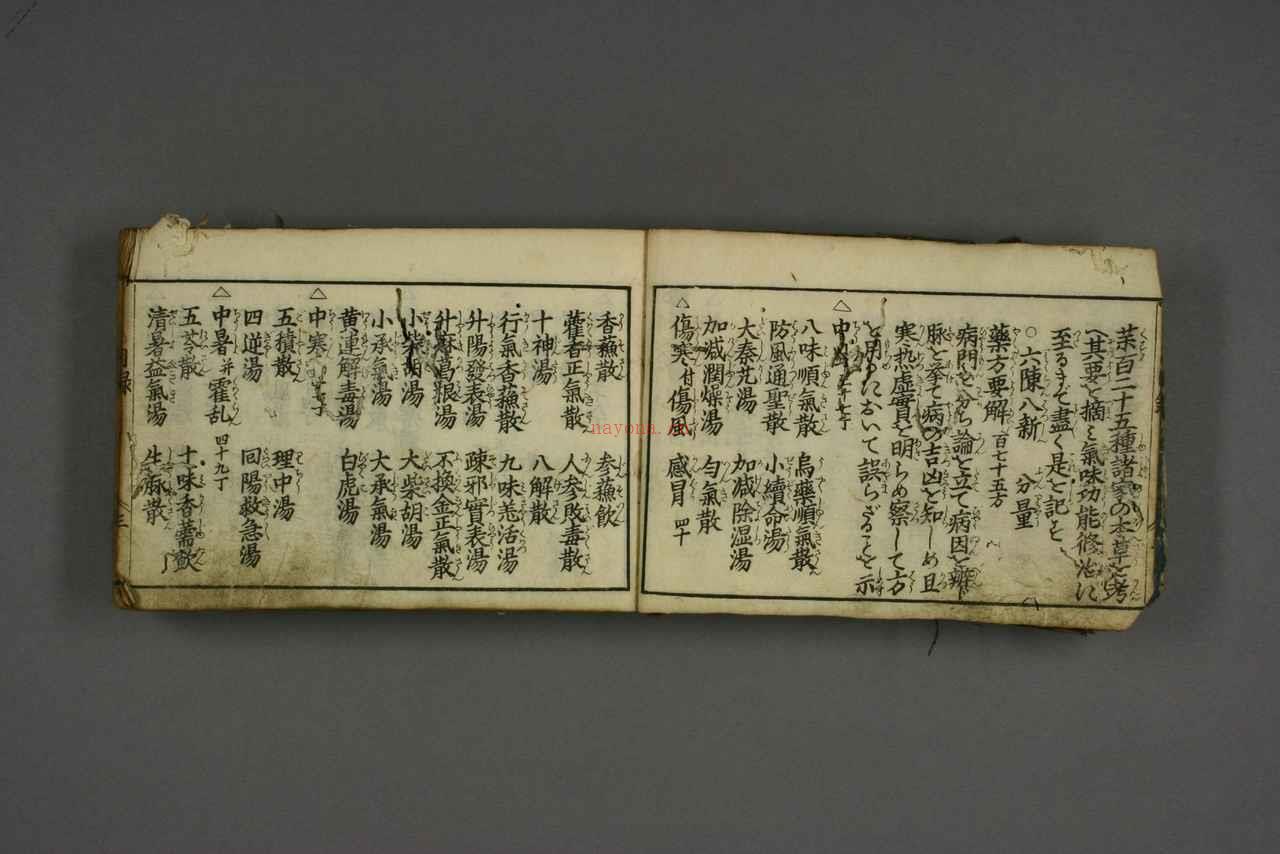 百二十五種諸家の本草を考
へ其要を摘ミ氣味功能修治に
至るまで盡く是を記す
○六陳八新 分量
藥方要解 百七十五方
病門を分ち論を立て病因を辨し
脉を挙て病の吉凶を知らしめ且
寒热虚實を明らめ察して方
を用るにおいて誤らざることを示す
△中
八味順氣散 烏藥順氣散
防風通聖散 小續命湯
大秦艽湯 加減除湿湯
加減潤燥湯 匀氣散
△傷寒 付傷風 感冒 四十
香蘓散 参蘓飲
藿香正氣散 人参敗毒散
十神湯 八解散
行氣香蘓散 九味羗活湯
升陽發表湯 疎邪實表湯
升麻葛根湯 不換金正氣散
小柴胡湯 大柴胡湯
小承氣湯 大承氣湯
黄連解毒湯 白虎湯
△中寒
五積散 理中湯
四逆湯 同陽救急湯
△中暑 并 霍乱 四十九丁
五苓散 十味香薷飲
清暑益氣湯 生脉散
目録 三
nayona.cn